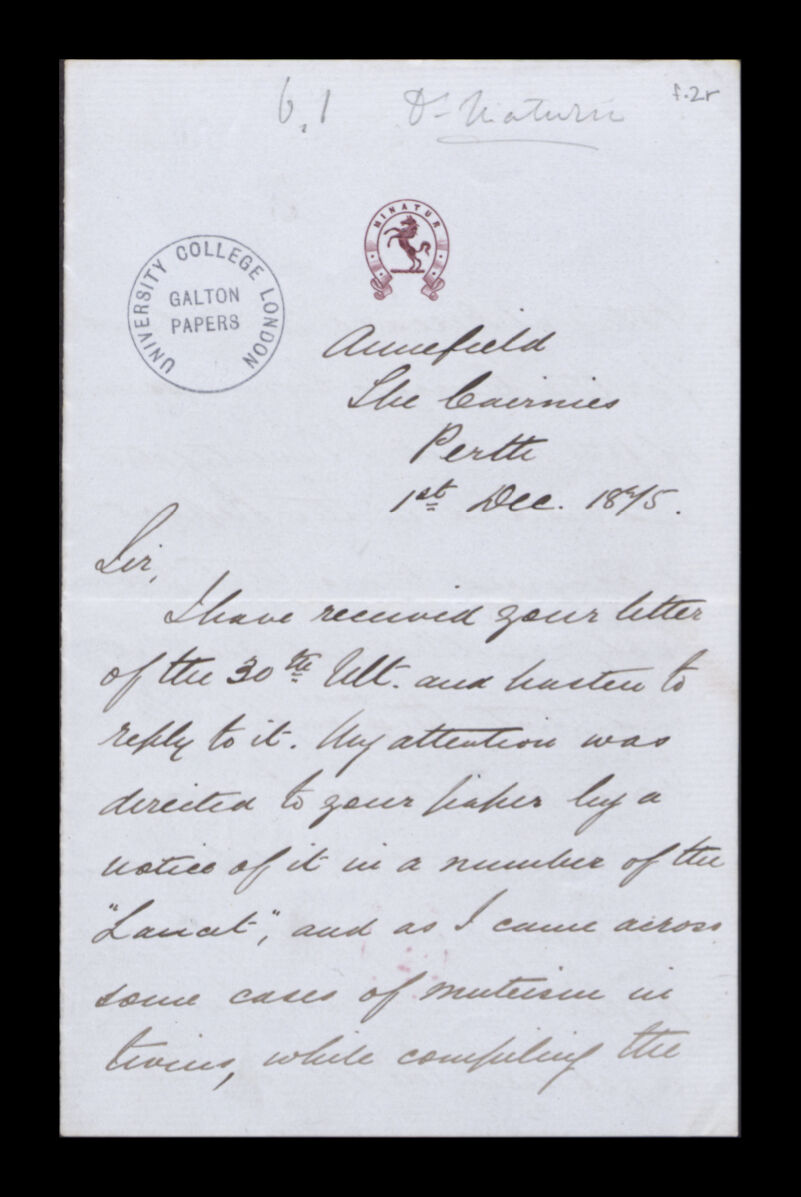 6.1 Dr Maturin f.2r
MINATUR
UNIVERSITY COLLEGE LONDON
GALTON
PAPERS
Annefield
The Cairnies
Perth
1st Dec. 1875.
Sir,
I have received your letter
of the 30th Ult. and hasten to
reply to it. My attention was
directed to your paper by a
notice of it in a number of the
"Lancet", and as I came across
some cases of muteism in
twins, while compiling the